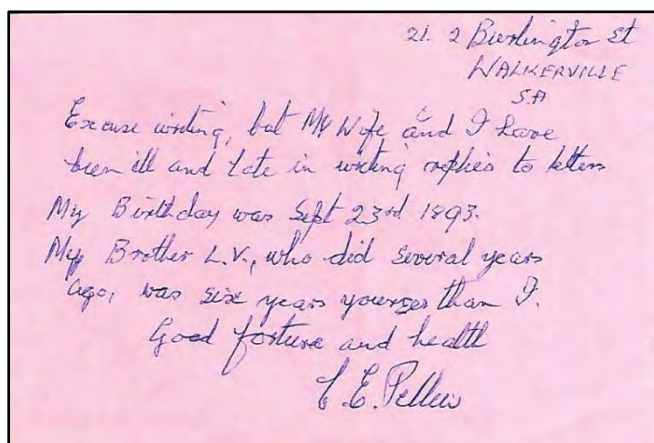 21. 2 Burlington St
WALKERVILLE
SA
Excuse writing, but My Wife and I have
been ill and late in writing replies to letters
My Birthday was Sept 23rd 1893.
My Brother L.V., who did several years
ago, was six years younger than I.
Good fortune and health
C.E. Pellew